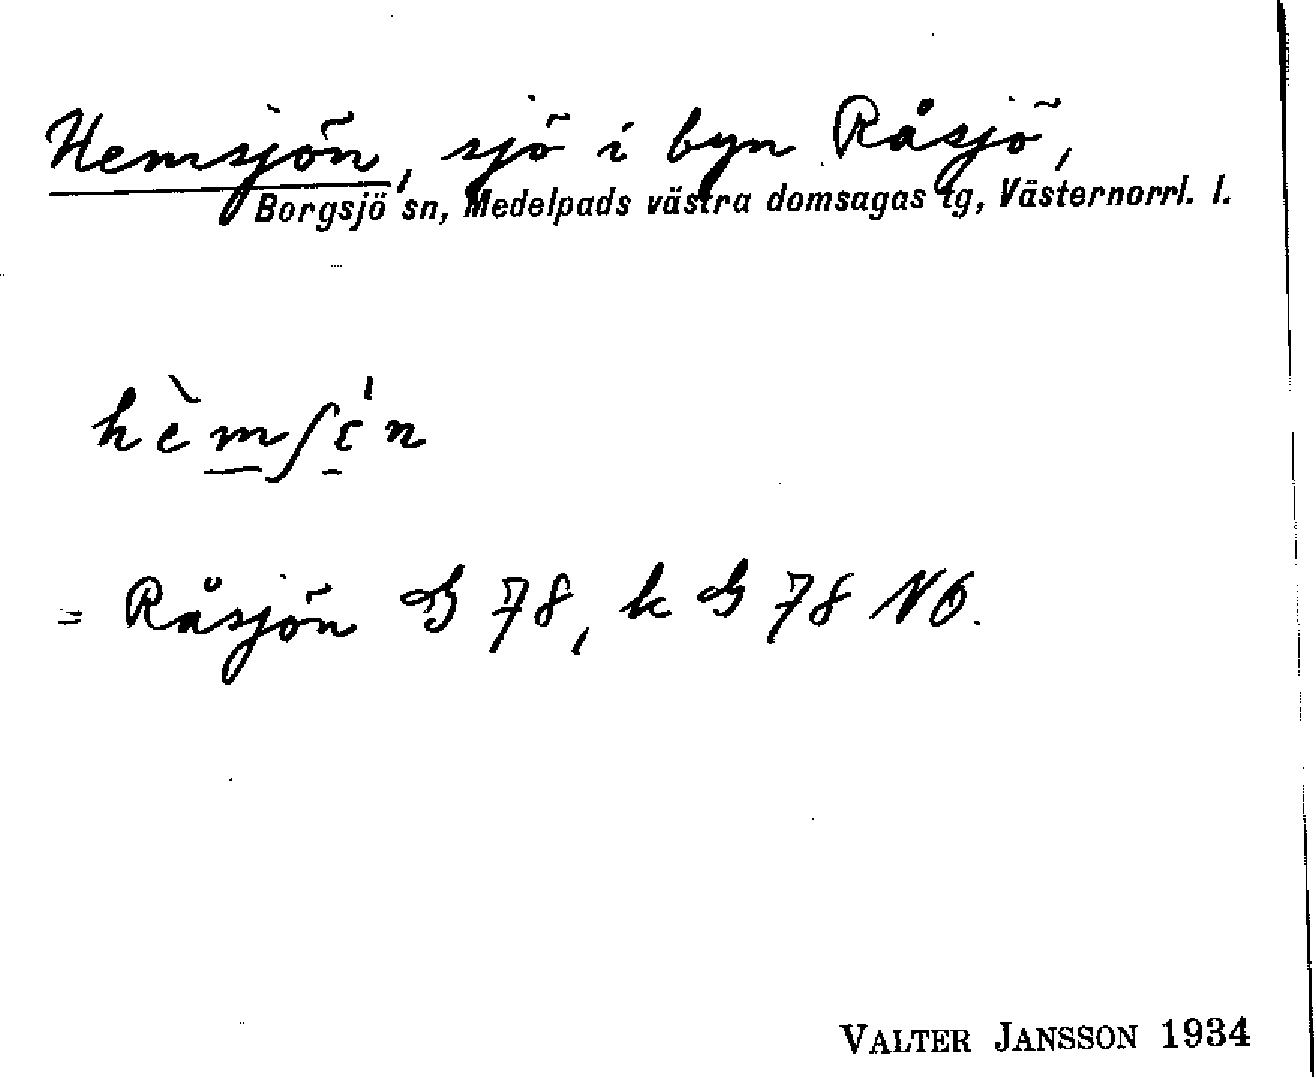 Hemsjön, sjö i byn Råsjö,
Borgsjö sn, Medelpads västra domsagas tg, Västernorrl. l.
= Råsjön G 78, k G 78 NO.
VALTER JANSSON 1934